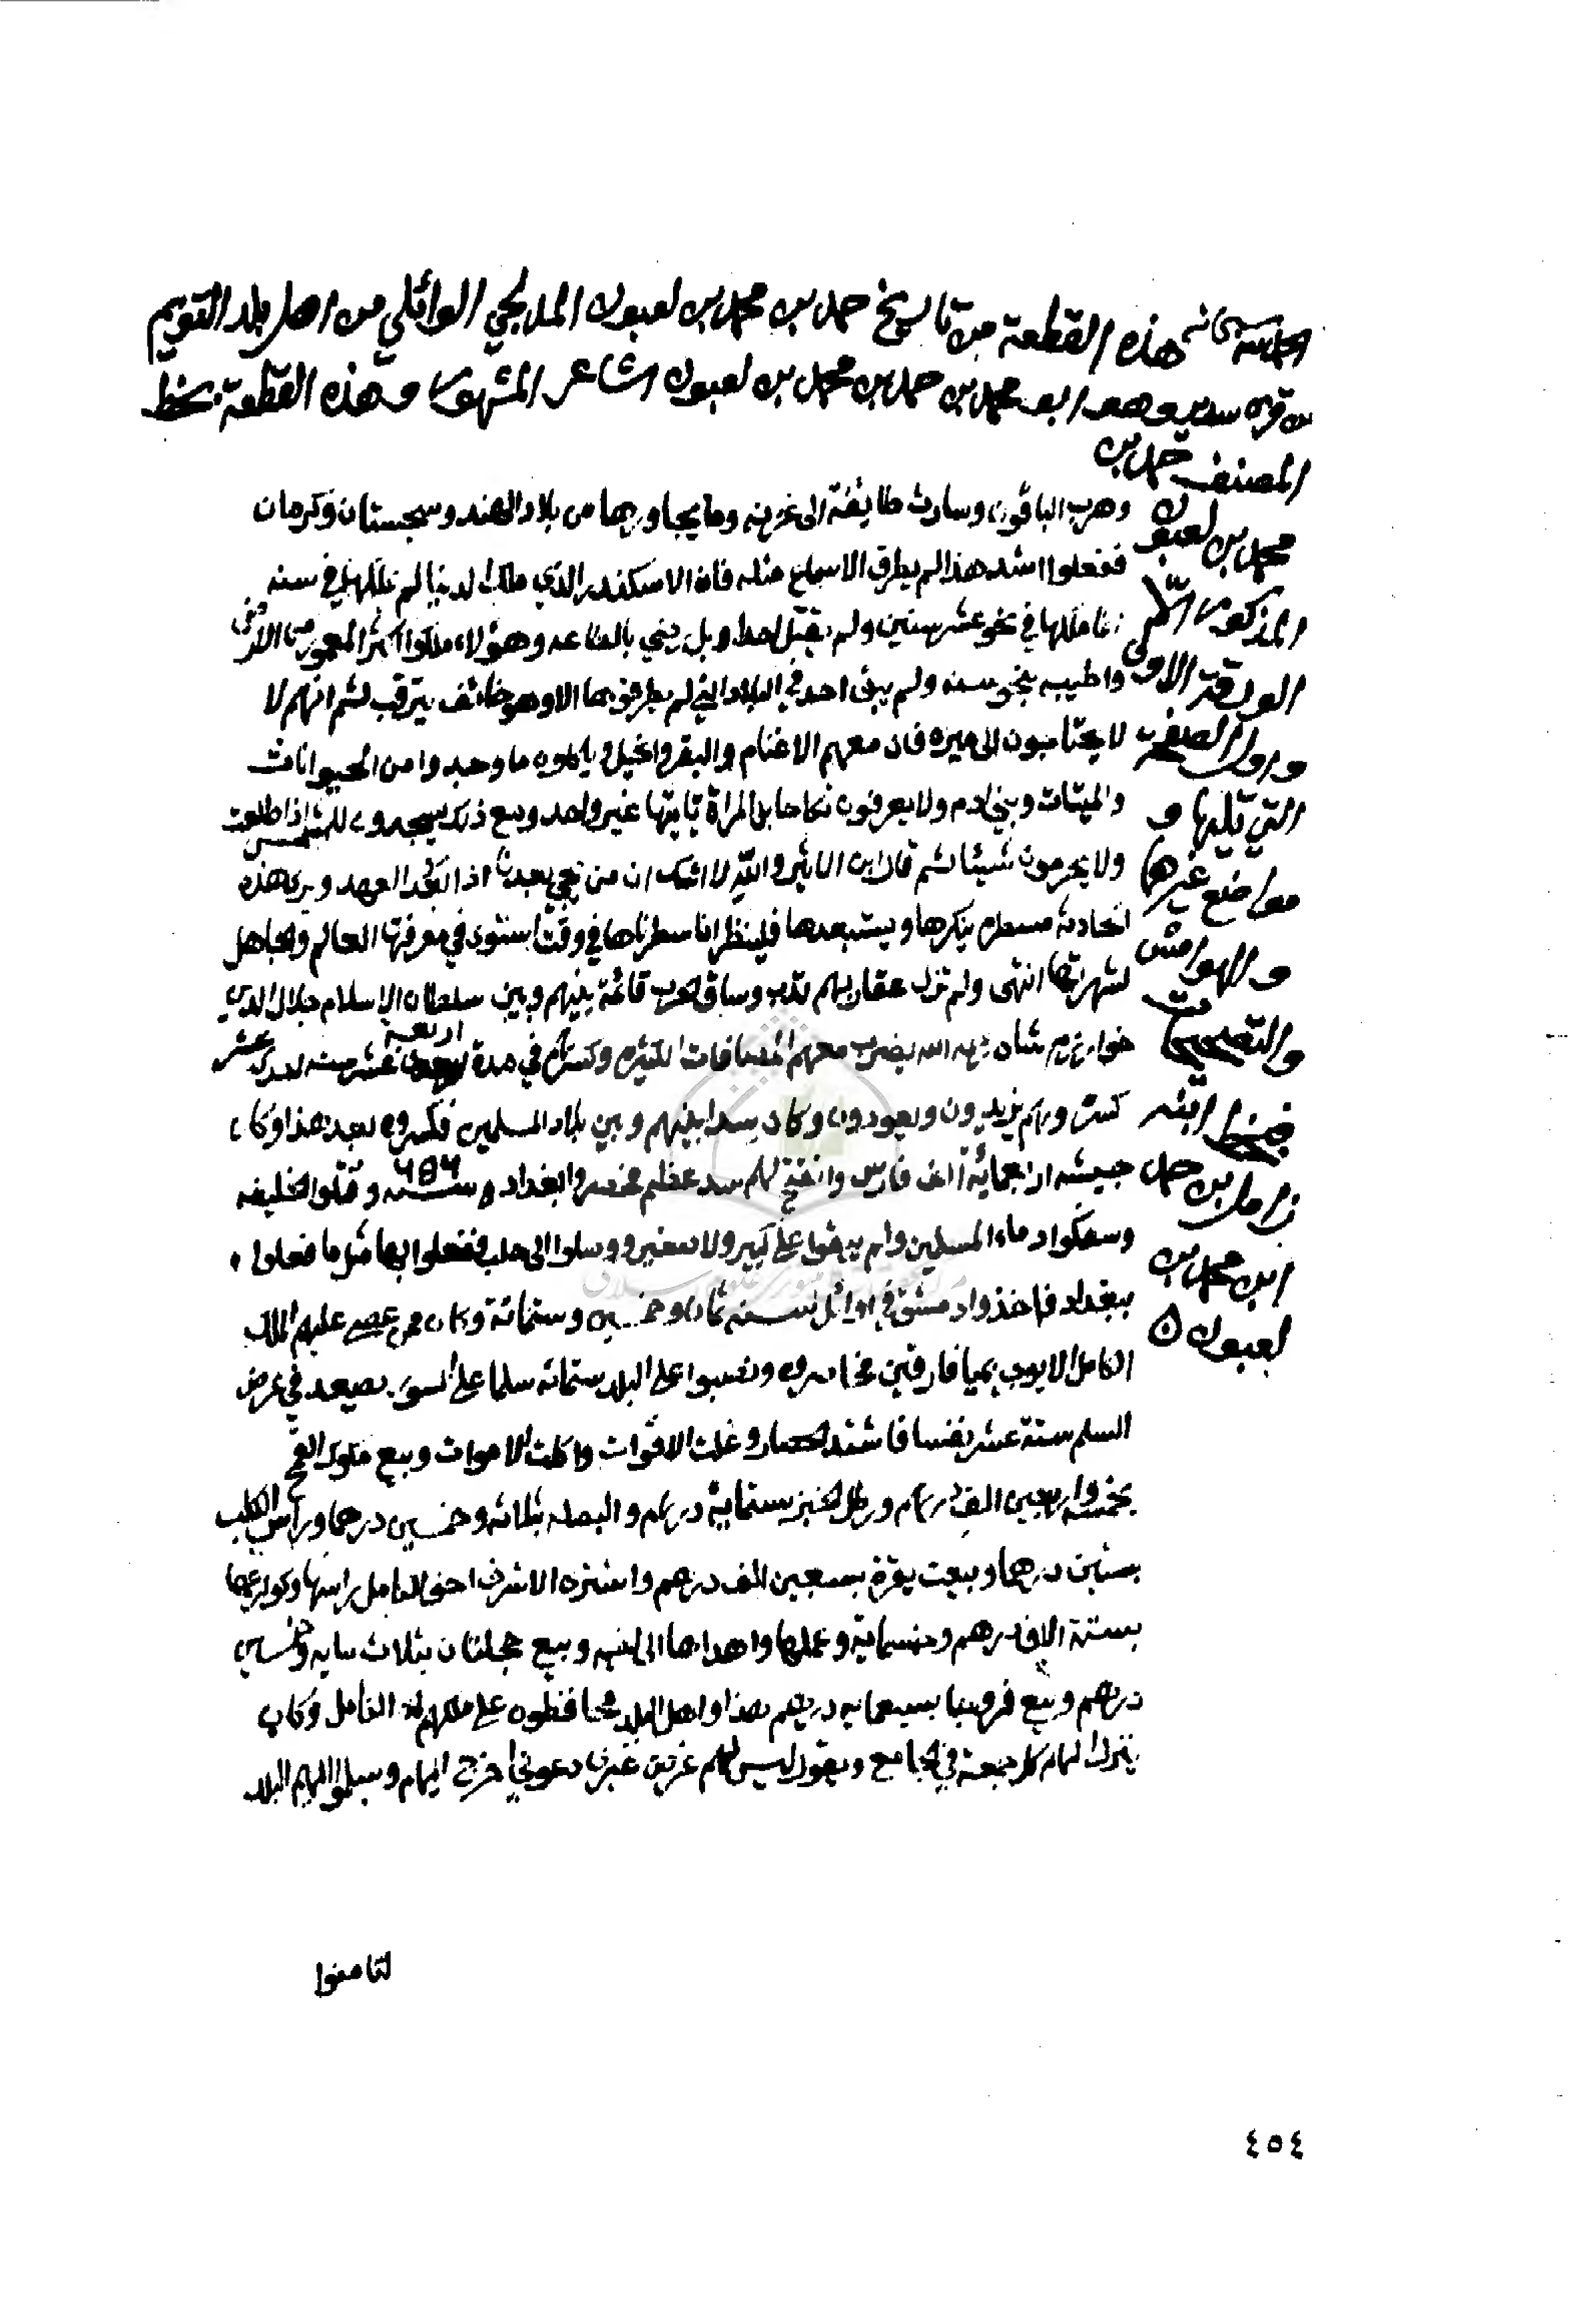 الحمد لله سبحانه هذه القطعة من تاريخ حمد بن محمد بن لعبون المدلجي الوائلي من اهل بلد التويم
من قرى سدير وهو ابو محمد بن حمد بن محمد بن لعبون الشاعر المشهور وهذه القطعة بخط
المصنف حمد بن
محمد بن لعبون
المذكور الا
الورقة الاولى
واول الصفحة
التي تليها و
مواضع غيرها
والهوامش
والتصحيحات
فبخط ابنه
زامل بن حمد
ابن محمد بن
لعبون
وهرب الباقون وسارت طايفة الى غزنه وما يجاورها من بلاد الهند وسجستان وكرمان
ففعلوا اشد هذا لم يطرق الاسماع مثله فان الاسكندر الذي ملك الدنيا لم يملكها في سنه
انما ملكها في نحو عشر سنين ولم يقتل احدا بل رضي بالطاعه وهؤلاء ملكوا اكثر المعمور من الارض
واطيبه بنحو سنه ولم يبق احد في البلاد التي لم يطرقوها الا وهو خائف يترقب ثم انهم لا
لا يحتاجون الى ميره فان معهم الاغنام والبقر والخيل وياكلون ما وجدوا من الحيوانات
والميتات وبني ادم ولا يعرفون نكاحا بل المراة ياتيها غير واحد ومع ذلك يسجدون للشمس اذا طلعت
ولا يحرمون شيئا ثم قال ابن الاثير والله لا اشك ان من يجي بعدنا اذا بعد العهد ويرى هذه
الحادثة مسطره ينكرها ويستبعدها فلينظر انا سطرناها في وقت استوى في معرفتها العالم والجاهل
لشهرتها انتهى ولم تزل عقاربهم تدب وساق الحرب قائمة بينهم وبين سلطان الاسلام جلال الدين
خوارزم شاه رحمه الله يضرب معهم المصافات الكثيره وكسرهم في مدة اربعة عشر سنه اربعة عشر
كسره وهم يزيدون ويعودون وكان سدا بينهم وبين بلاد المسلمين فكسروه بعد هذا وكان
جيشه اربعمائة الف فارس وانفتح لهم سد عظيم فحصروا بغداد سنه ٦٥٦ وقتلوا الخليفه
وسفكوا دماء المسلمين ولم يبقوا على كبير ولا صغير ووصلوا الى حلب ففعلوا بها مثل ما فعلوا
ببغداد فاخذوا دمشق في اوائل سنه ثمان وخمسين وستمائة وكان ممن عصى عليهم الملك
الكامل الايوبي بميافارقين فحاصروه ونصبوا على البلد ستمائه سلما على السور يصعد في عرض
السلم ستة عشر نفسا فاشتد الحصار وغلت الاقوات واكلت الاموات وبيع مكوك القمح
بخمسه واربعين الف درهم ورطل الخبز بستمايه درهم والبصله بثلاثه وخمسين درهما وراس الكلب
بستين درهما وبيعت بقرة بسبعين الف درهم واشترى الاشرف اخو الكامل راسها وكوارعها
بستة الاف درهم وخمسماية وعملها واهداها الى اخيه وبيع بثلاث مايه وخمسين
درهم وبيع بسبعمايه درهم هذا واهل البلد محافظون على ملكهم الكامل وكان
ينزل لهم كل جمعة في الجامع ويقول ليس لهم غرض غيري دعوني اخرج اليهم وسلموا اليهم البلد
لتامنوا
٤٥٤